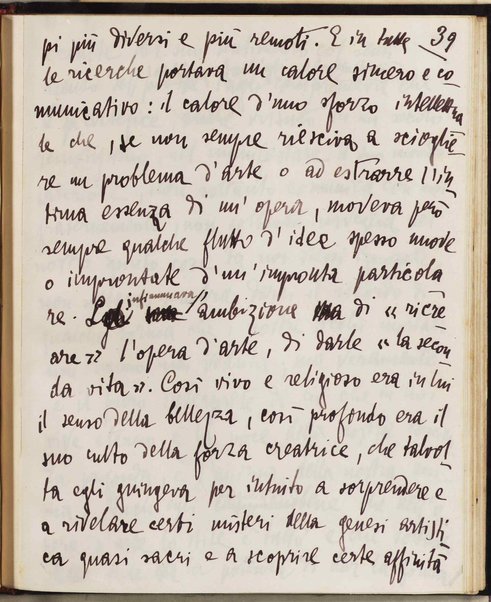 39
pi più diversi e più remoti. E in tutte
le ricerche portava un calore sincero e co
municativo: il calore d'uno sforzo intellettua
le che, se non sempre riesciva a scioglie
re un problema d'arte o ad estrarre l'in
tima essenza di un'opera, moveva però
sempre qualche flutto d'idee spesso nuove
o improntate d'un'impronta particola
re. L' infiammava l'ambizione di « ricre
are » l'opera d'arte, di darle « la secon
da vita ». Così vivo e religioso era in lui
il senso della bellezza, così profondo era il
suo culto della forza creatrice, che talvol
ta egli giungeva per intuito a sorprendere e
a rivelare certi misteri della genesi artisti
ca quasi sacri e a scoprire certe affinità